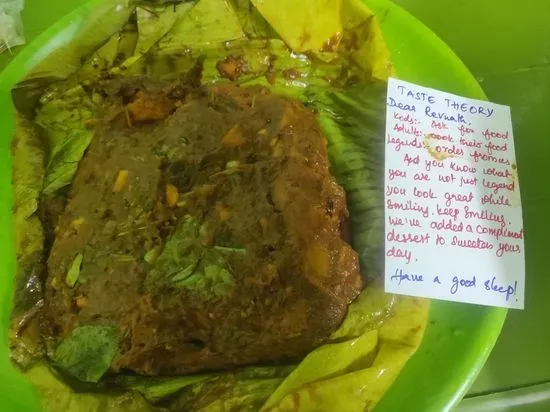 TASTE THEORY
Dear Revnath.
Kids:- Ask for food
Adults:- Cook their food
Legends:- order from us
And you know what
you are not just legend
you look great while
smiling. keep smiling.
We've added a compliment
dessert to sweeten your
day.
Have a good sleep!